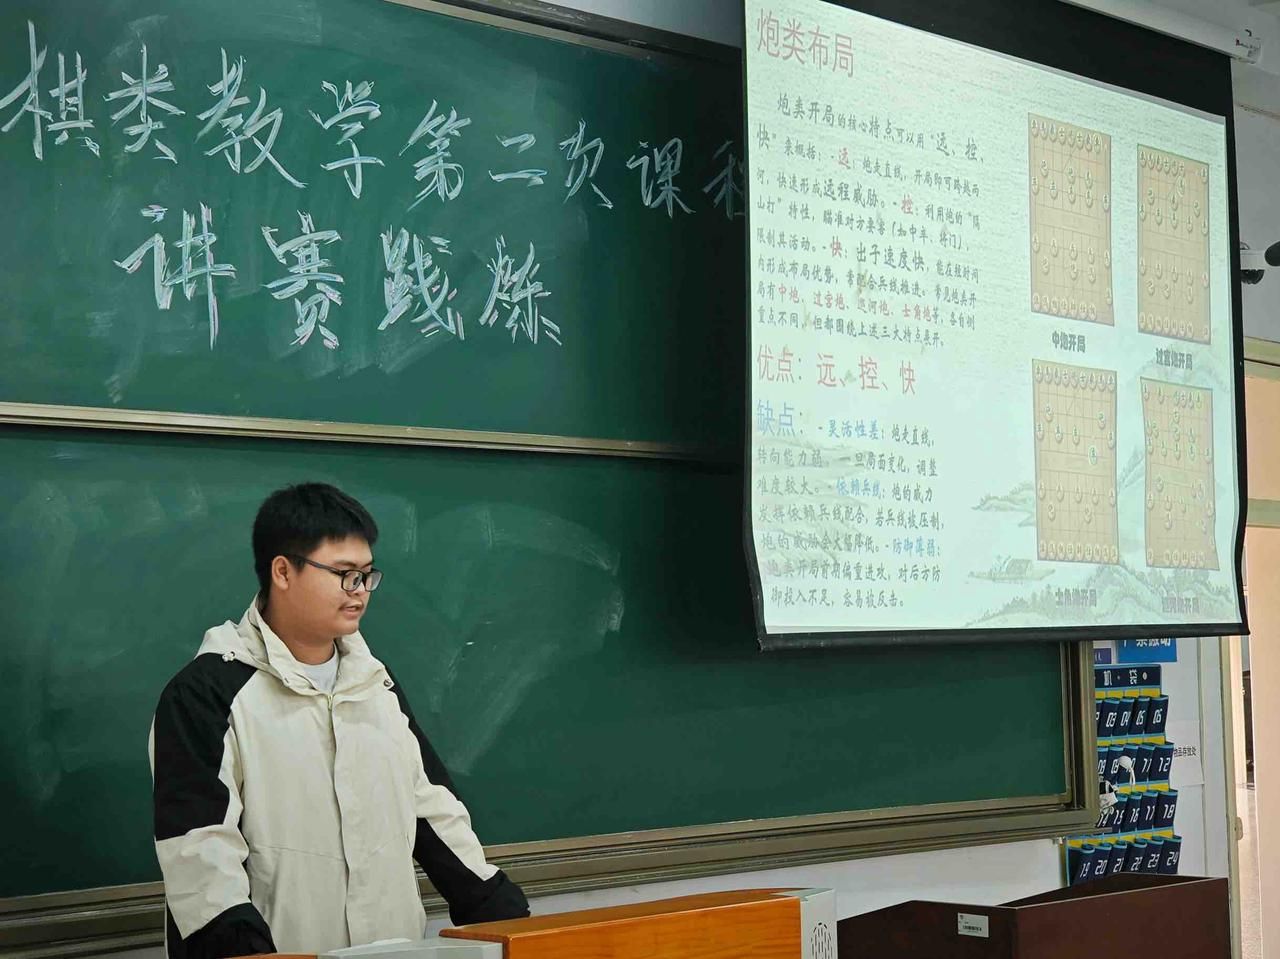 棋类教学第二次课程
讲赛践炼
炮类布局
炮类开局的核心特点可以用“远、控、
快”来概括：-远：炮走直线，开局即可跨越两
河，快速形成远程威胁。-控：利用炮的“隔
山打”特性，瞄准对方要害（如中车、将门），
限制其活动。-快：出子速度快，能在短时间
内形成布局优势，常配合兵线推进。常见炮类开
局有中炮、过宫炮、巡河炮、士角炮等，各自侧
重点不同，但都围绕上述三大特点展开。
优点：远、控、快
缺点：-灵活性差：炮走直线，
转向能力弱，一旦局面变化，调整
难度较大。-依赖兵线：炮的威力
发挥依赖兵线配合，若兵线被压制，
炮的威胁会大幅降低。-防御薄弱：
炮类开局前期偏重进攻，对后方防
御投入不足，容易被反击。
中炮开局
过宫炮开局
士角炮开局
机袋
03 04 05 06
08 09 11 12
15 16 17 18
19 20 21 22 23 24
物品存放处